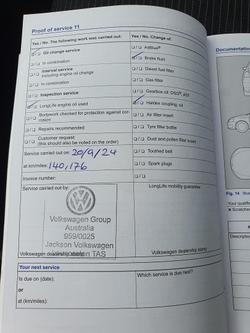 Proof of service 11
Yes / No: The following work was carried out:
Oil change service
In combination
Interval service
including engine oil change
In combination
Inspection service
LongLife engine oil used
Bodywork checked for protection against corrosion
Repairs recommended
Customer request
(this should also be noted on the order)
Service carried out on: 20/9/24
at km/miles: 140,176
Invoice number:
Service carried out by:
Volkswagen Group
Australia
959/0025
Jackson Volkswagen
TAS
Yes / No: Change of:
AdBlue®
Brake fluid
Diesel fuel filter
Gas filter
Gearbox oil
Haldex coupling oil
Air filter insert
Tyre filler bottle
Dust and pollen filter insert
Toothed belt
Spark plugs
LongLife mobility guarantee
Volkswagen dealership stamp
Your next service
Is due on (date):
or
at (km/miles):
Which service is due next?
Documentation
Fig. 14